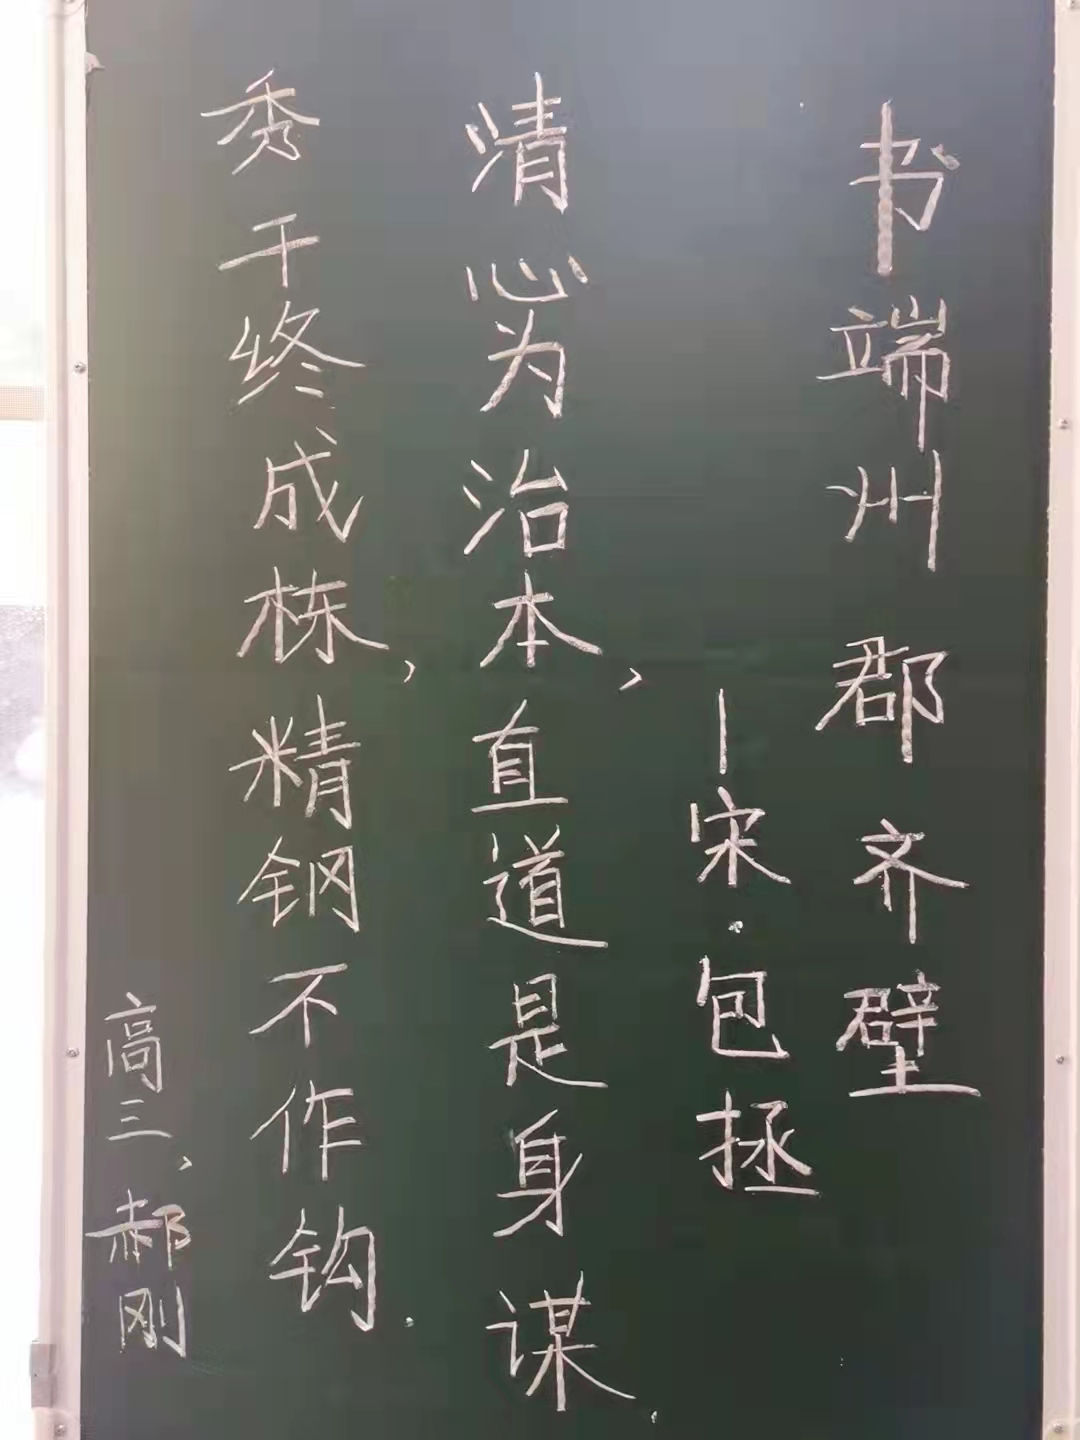 书端州郡齐壁
—宋·包拯
清心为治本，直道是身谋.
秀干终成栋，精钢不作钩.
高三、郝刚